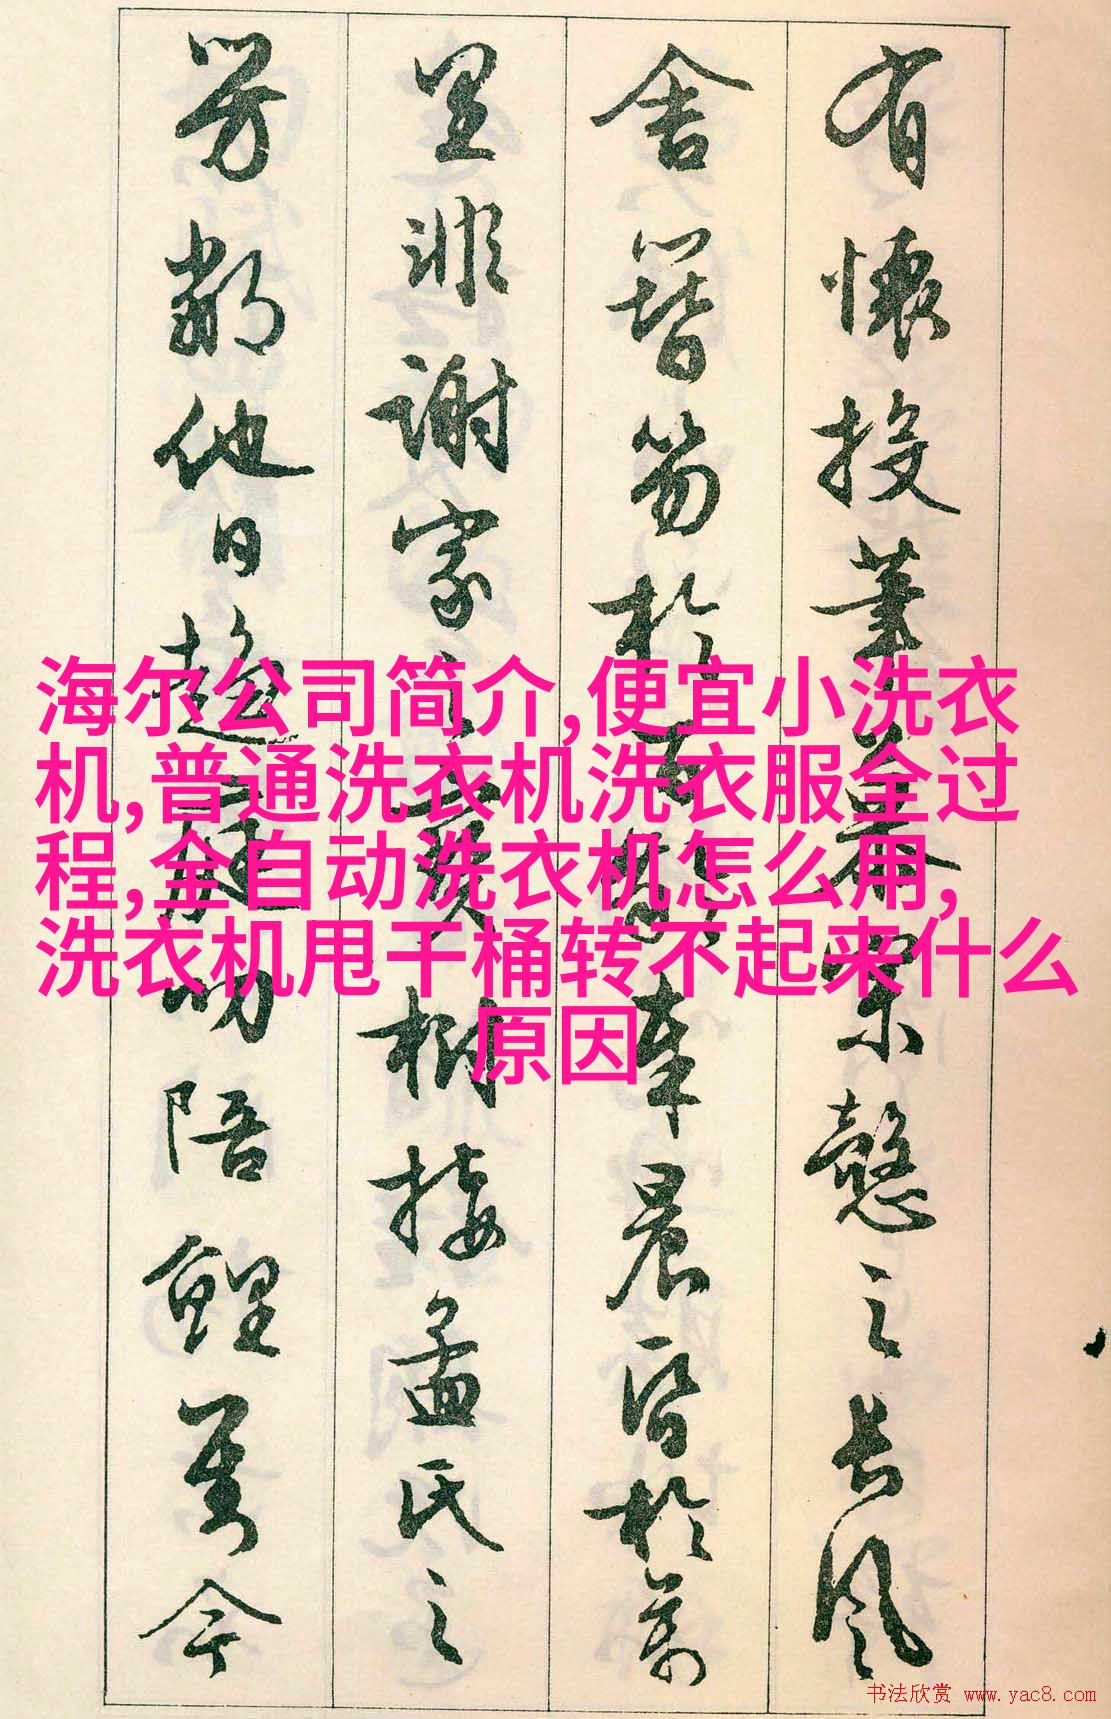 有懷投筆慕宗愨之長風
舍簪笏於百齡奉晨昏於萬
里非謝家之寶樹接孟氏之
芳鄰他日趨庭叨陪鯉對今
海尔公司简介,便宜小洗衣
机,普通洗衣机洗衣服全过
程,全自动洗衣机怎么用,
洗衣机甩干桶转不起来什么
原因
书法欣赏 www.yac8.com